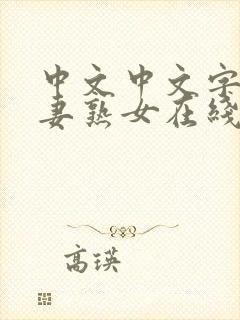 中文中文字
妻熟女在线
高瑛